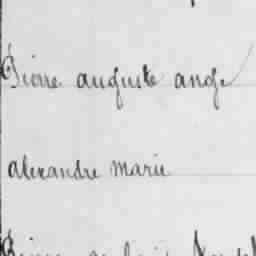 Pierre auguste ange
alexandre marie